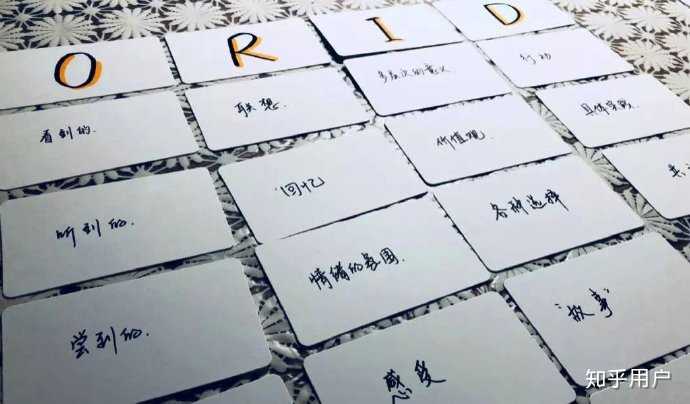 O R I D
看到的. 联想. 多层次的意义 行动
听到的. 回忆 价值观. 具体步骤.
尝到的. 情绪的氛围. 各种选择
感受 "故事"
知乎用户